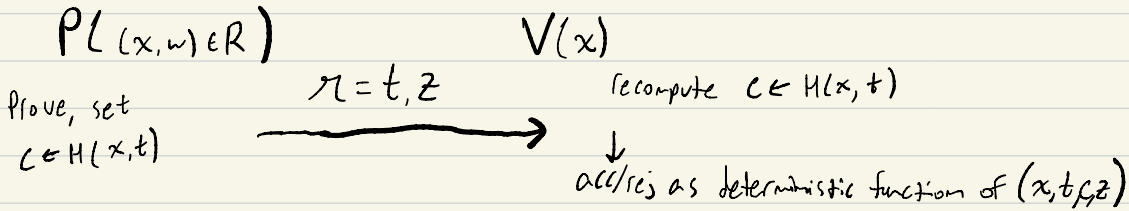 P((x,w)∈R)
V(x)
Prove, set
c ← H(x,t)
π = t,z
recompute c ← H(x,t)
↓
acc/rej as deterministic function of (x,t,c,z)